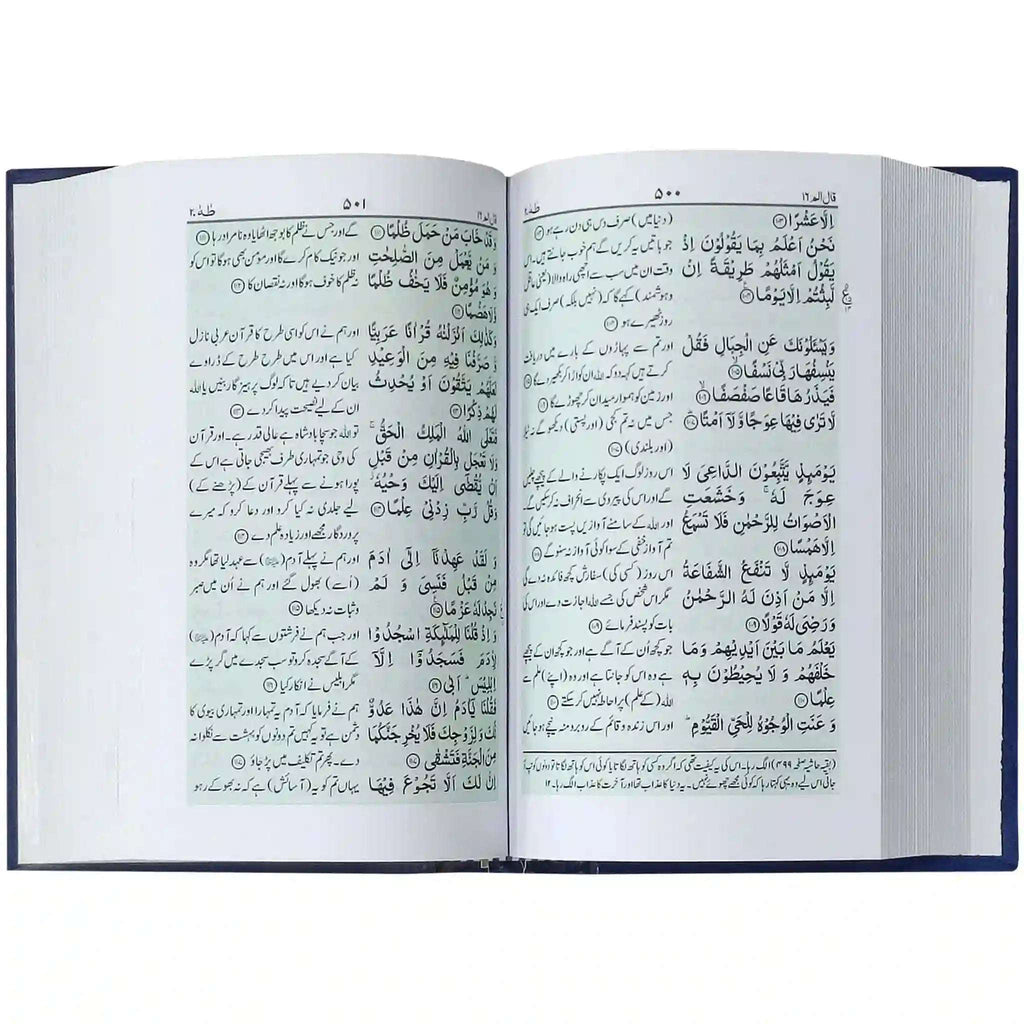 قال الم ١٦
۵۰۰
طٰهٰ ٢٠
اِلَّا عَشْرًا ۝۱۰۳
نَحْنُ اَعْلَمُ بِمَا يَقُوْلُوْنَ اِذْ
يَقُوْلُ اَمْثَلُهُمْ طَرِيْقَةً اِنْ
لَّبِثْتُمْ اِلَّا يَوْمًا ۝۱۰۴
وَيَسْـَٔلُوْنَكَ عَنِ الْجِبَالِ فَقُلْ
يَنْسِفُهَا رَبِّيْ نَسْفًا ۝۱۰۵
فَيَذَرُهَا قَاعًا صَفْصَفًا ۝۱۰۶
لَّا تَرٰى فِيْهَا عِوَجًا وَّلَآ اَمْتًا ۝۱۰۷
يَوْمَىِٕذٍ يَّتَّبِعُوْنَ الدَّاعِيَ لَا
عِوَجَ لَهٗ ۚ وَخَشَعَتِ
الْاَصْوَاتُ لِلرَّحْمٰنِ فَلَا تَسْمَعُ
اِلَّا هَمْسًا ۝۱۰۸
يَوْمَىِٕذٍ لَّا تَنْفَعُ الشَّفَاعَةُ
اِلَّا مَنْ اَذِنَ لَهُ الرَّحْمٰنُ
وَرَضِيَ لَهٗ قَوْلًا ۝۱۰۹
يَعْلَمُ مَا بَيْنَ اَيْدِيْهِمْ وَمَا
خَلْفَهُمْ وَلَا يُحِيْطُوْنَ بِهٖ
عِلْمًا ۝۱۱۰
وَعَنَتِ الْوُجُوْهُ لِلْحَيِّ الْقَيُّوْمِ ؕ
(دنیا میں) صرف دس ہی دن رہے ہو ۝۱۰۳
جو باتیں یہ کریں گے ہم خوب جانتے ہیں۔ اس
وقت ان میں سب سے اچھی راہ والا (یعنی عاقل
وہوشمند) کہے گا کہ (نہیں بلکہ) صرف ایک ہی
روز ٹھیرے ہو ۝۱۰۴
اور تم سے پہاڑوں کے بارے میں دریافت
کرتے ہیں کہہ دو کہ اللہ ان کو اڑا کر بکھیر دے گا ۝۱۰۵
اور زمین کو ہموار میدان کر چھوڑے گا ۝۱۰۶
جس میں نہ تم کجی (اور پستی) دیکھو گے نہ ٹیلا
(اور بلندی) ۝۱۰۷
اس روز لوگ ایک پکارنے والے کے پیچھے چلیں
گے اور اس کی پیروی سے انحراف نہ کرسکیں گے۔
اور اللہ کے سامنے آوازیں پست ہو جائیں گی تو
تم آواز خفی کے سوا کوئی آواز نہ سنو گے ۝۱۰۸
اس روز (کسی کی) سفارش کچھ فائدہ نہ دے گی
مگر اس شخص کی جسے اللہ اجازت دے اور اس کی
بات کو پسند فرمائے ۝۱۰۹
جو کچھ ان کے آگے ہے اور جو کچھ ان کے پیچھے
ہے وہ اس کو جانتا ہے اور وہ (اپنے) علم سے
اللہ (کے علم) پر احاطہ نہیں کر سکتے ۝۱۱۰
اور اس زندہ و قائم کے روبرو منہ نیچے ہو جائیں
(بقیہ حاشیہ صفحہ ۴۹۹) الگ رہا۔ اس کی یہ کیفیت تھی کہ اگر وہ کسی کو ہاتھ لگاتا یا کوئی اس کو ہاتھ لگاتا تو دونوں کو تپ آ
جاتی اس لیے وہ یہی کہتا رہا کہ کوئی مجھے چھوئے نہیں۔ یہ دنیا کا عذاب تھا اور آخرت کا عذاب الگ رہا۔ ۱۲
قال الم ١٦
۵۰۱
طٰهٰ ٢٠
وَقَدْ خَابَ مَنْ حَمَلَ ظُلْمًا ۝۱۱۱
وَمَنْ يَّعْمَلْ مِنَ الصّٰلِحٰتِ
وَهُوَ مُؤْمِنٌ فَلَا يَخٰفُ ظُلْمًا
وَّلَا هَضْمًا ۝۱۱۲
وَكَذٰلِكَ اَنْزَلْنٰهُ قُرْاٰنًا عَرَبِيًّا
وَّصَرَّفْنَا فِيْهِ مِنَ الْوَعِيْدِ
لَعَلَّهُمْ يَتَّقُوْنَ اَوْ يُحْدِثُ
لَهُمْ ذِكْرًا ۝۱۱۳
فَتَعٰلَى اللّٰهُ الْمَلِكُ الْحَقُّ ۚ
وَلَا تَعْجَلْ بِالْقُرْاٰنِ مِنْ قَبْلِ
اَنْ يُّقْضٰٓى اِلَيْكَ وَحْيُهٗ ؗ
وَقُلْ رَّبِّ زِدْنِيْ عِلْمًا ۝۱۱۴
وَلَقَدْ عَهِدْنَآ اِلٰٓى اٰدَمَ
مِنْ قَبْلُ فَنَسِيَ وَلَمْ
نَجِدْ لَهٗ عَزْمًا ۝۱۱۵
وَاِذْ قُلْنَا لِلْمَلٰٓىِٕكَةِ اسْجُدُوْا
لِاٰدَمَ فَسَجَدُوْٓا اِلَّآ
اِبْلِيْسَ ؕ اَبٰى ۝۱۱۶
فَقُلْنَا يٰٓاٰدَمُ اِنَّ هٰذَا عَدُوٌّ
لَّكَ وَلِزَوْجِكَ فَلَا يُخْرِجَنَّكُمَا
مِنَ الْجَنَّةِ فَتَشْقٰى ۝۱۱۷
اِنَّ لَكَ اَلَّا تَجُوْعَ فِيْهَا
گے اور جس نے ظلم کا بوجھ اٹھایا وہ نامراد رہا ۝۱۱۱
اور جو نیک کام کرے گا اور مؤمن بھی ہوگا تو اس کو
نہ ظلم کا خوف ہوگا اور نہ نقصان کا ۝۱۱۲
اور ہم نے اس کو اسی طرح کا قرآن عربی نازل
کیا ہے اور اس میں طرح طرح کے ڈراوے
بیان کر دیے ہیں تاکہ لوگ پرہیزگار بنیں یا اللہ
ان کے لیے نصیحت پیدا کر دے ۝۱۱۳
تو اللہ جو سچا بادشاہ ہے عالی قدر ہے۔ اور قرآن
کی وحی جو تمہاری طرف بھیجی جاتی ہے اس کے
پورا ہونے سے پہلے قرآن کے (پڑھنے کے)
لیے جلدی نہ کیا کرو اور دعا کرو کہ میرے
پروردگار مجھے اور زیادہ علم دے ۝۱۱۴
اور ہم نے پہلے آدم (علیہ السلام) سے عہد لیا تھا مگر وہ
(اُسے) بھول گئے اور ہم نے اُن میں صبر
وثبات نہ دیکھا ۝۱۱۵
اور جب ہم نے فرشتوں سے کہا کہ آدم (علیہ السلام)
کے آگے سجدہ کرو تو سب سجدے میں گر پڑے
مگر ابلیس نے انکار کیا ۝۱۱۶
ہم نے فرمایا کہ آدم یہ تمہارا اور تمہاری بیوی کا
دشمن ہے تو یہ کہیں تم دونوں کو بہشت سے نکلوا نہ
دے۔ پھر تم تکلیف میں پڑ جاؤ ۝۱۱۷
یہاں تم کو یہ (آسائش) ہے کہ نہ بھوکے رہو